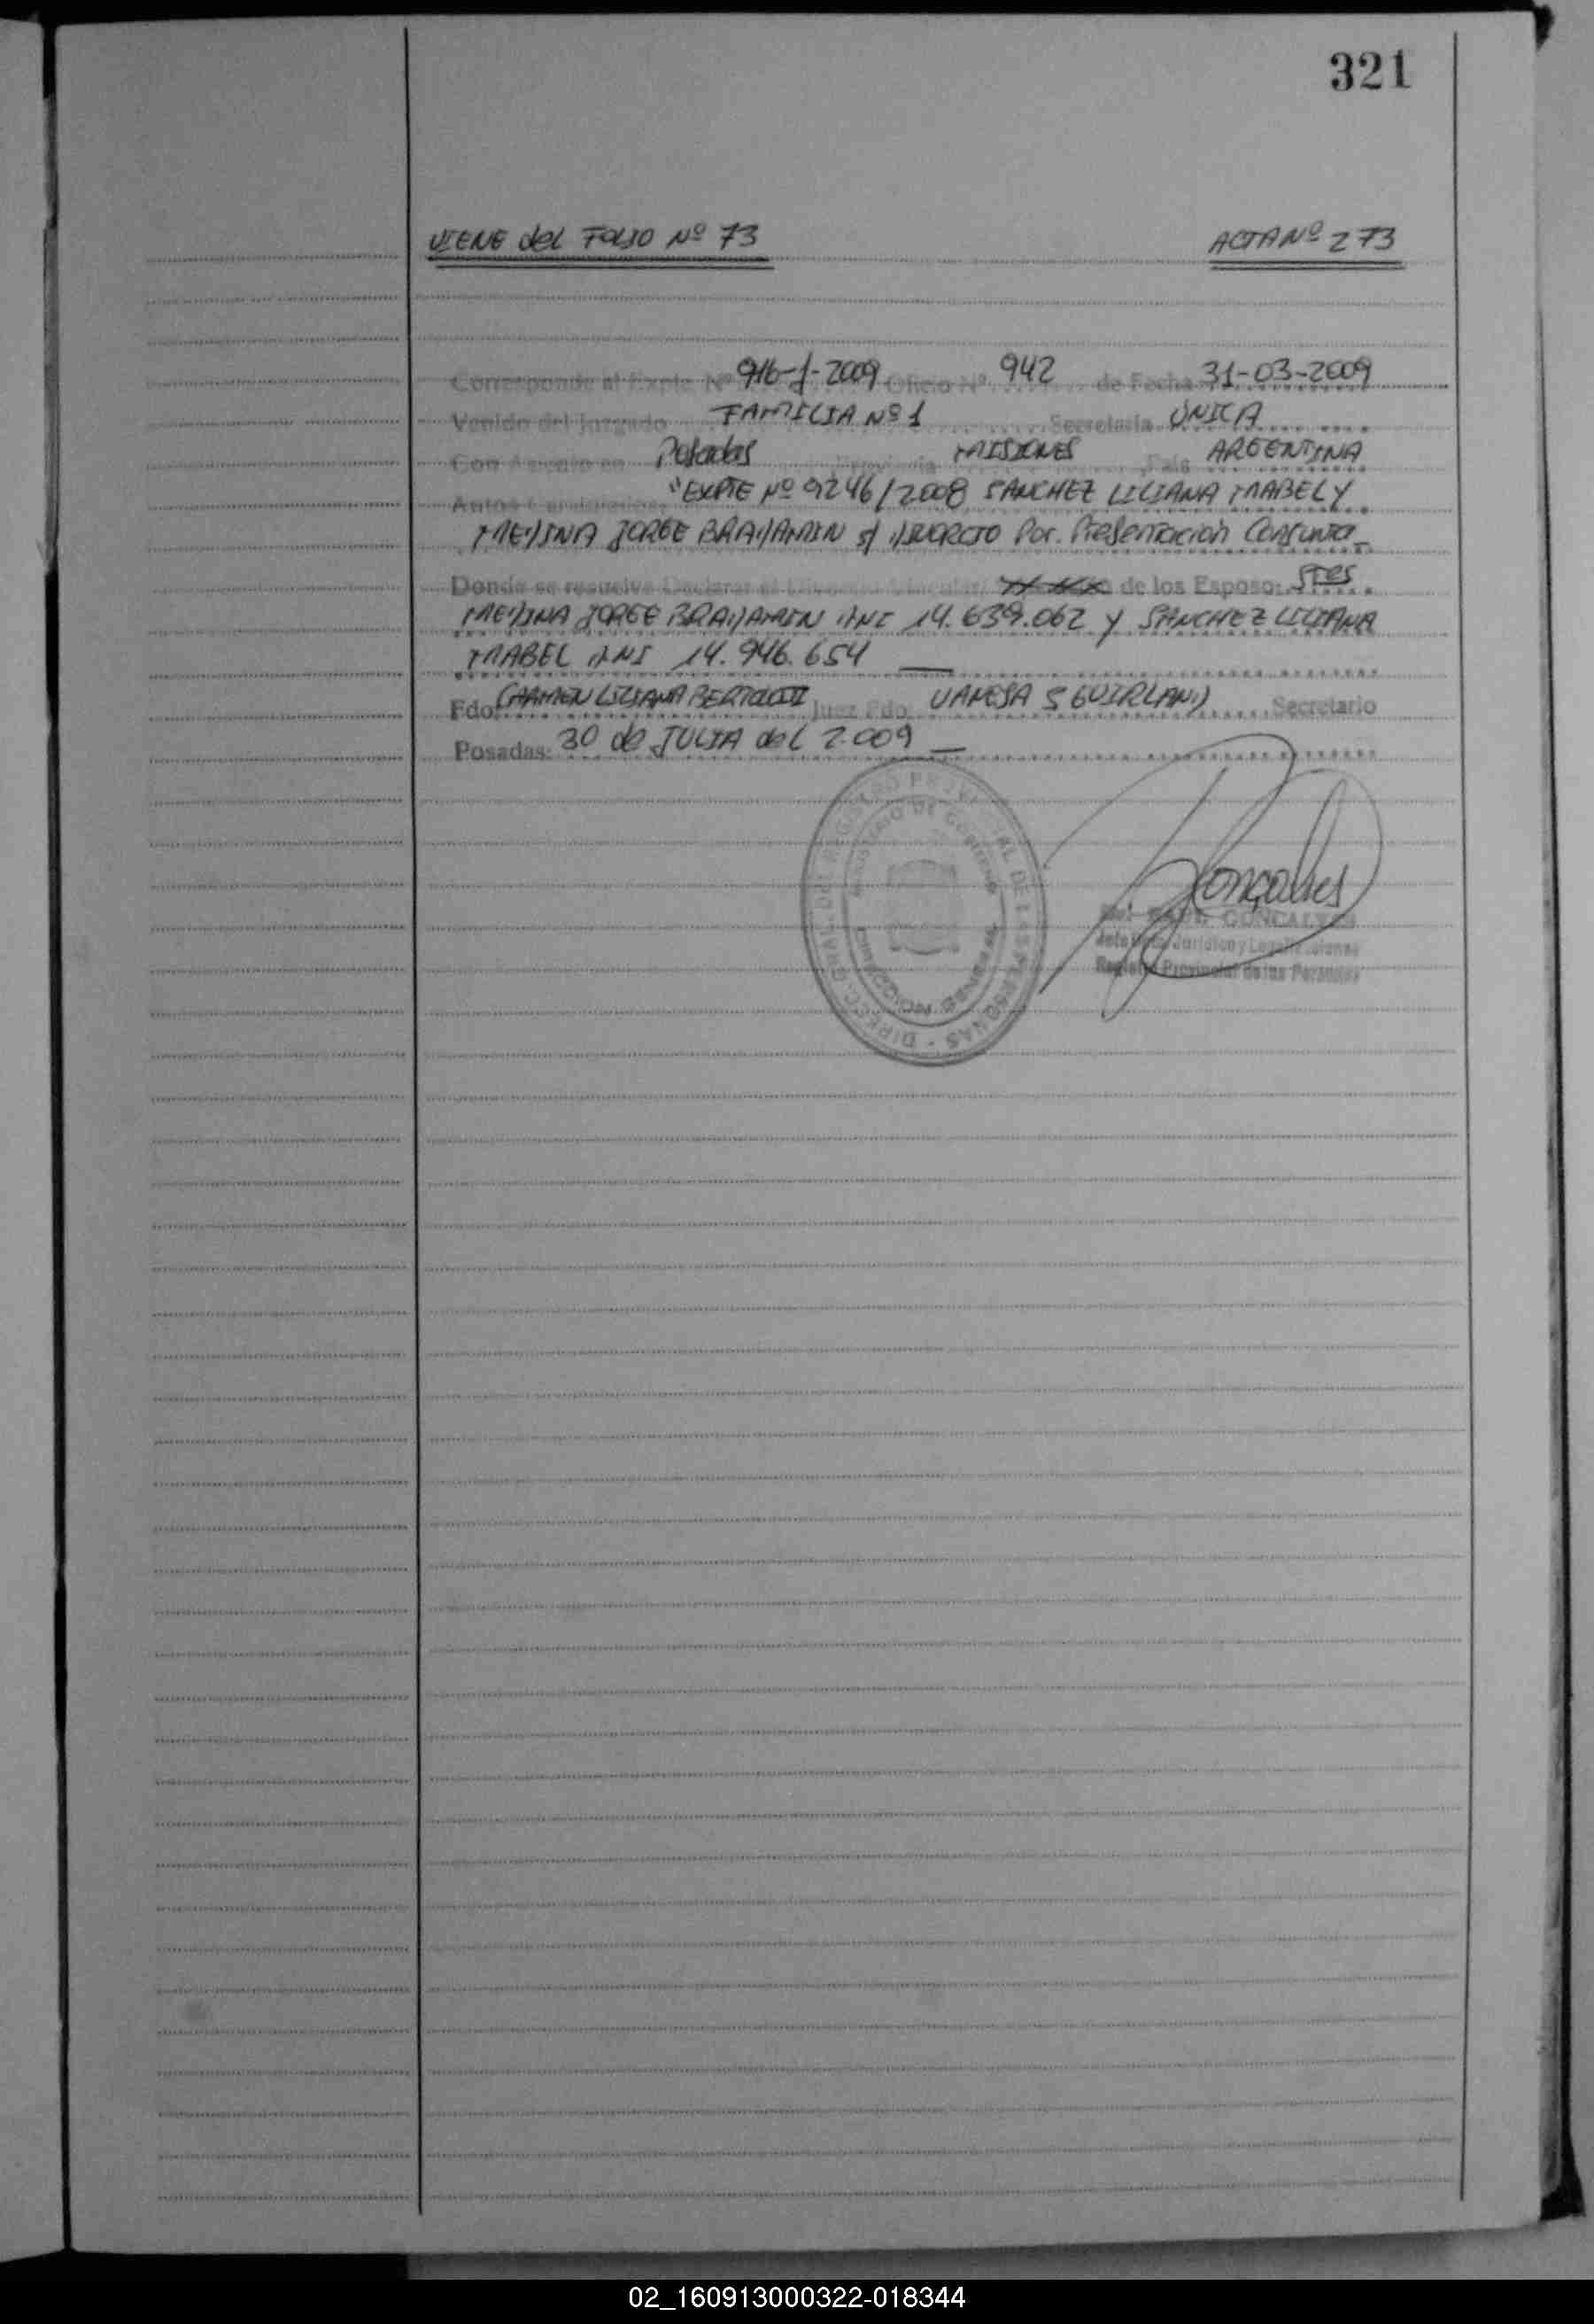 321
VIENE del FOLIO Nº 73 ACTA Nº 273
Corresponde al Expte Nº 916-J-2009 Oficio Nº 942 de Fecha 31-03-2009
Venido del juzgado FAMILIA Nº 1 Secretaria ÚNICA
Con Asiento en Posadas Provincia MISIONES País ARGENTINA
"EXPTE Nº 9246/2008 SANCHEZ LILIANA MABEL Y
MEDINA JORGE s/ DIVORCIO Por. Presentación Conjunta
Donde se resuelve Declarar el Divorcio Vincular de los Esposo: Stes
MEDINA JORGE DNI 14.639.062 y SANCHEZ LILIANA
MABEL DNI 14.946.654
Fdo CARMEN LILIANA BERTOLOTTI Juez Fdo VANESA S GUIRLAND Secretario
Posadas: 30 de JULIA del 2.009
DIRECC. GRAL. DEL REGISTRO PROVINCIAL DE LAS PERSONAS
MINISTERIO DE Gobierno
MISIONES
Gonçalves
GONCALVES
Jurídico y Legalizaciones
Registro Provincial de las Personas
02_160913000322-018344